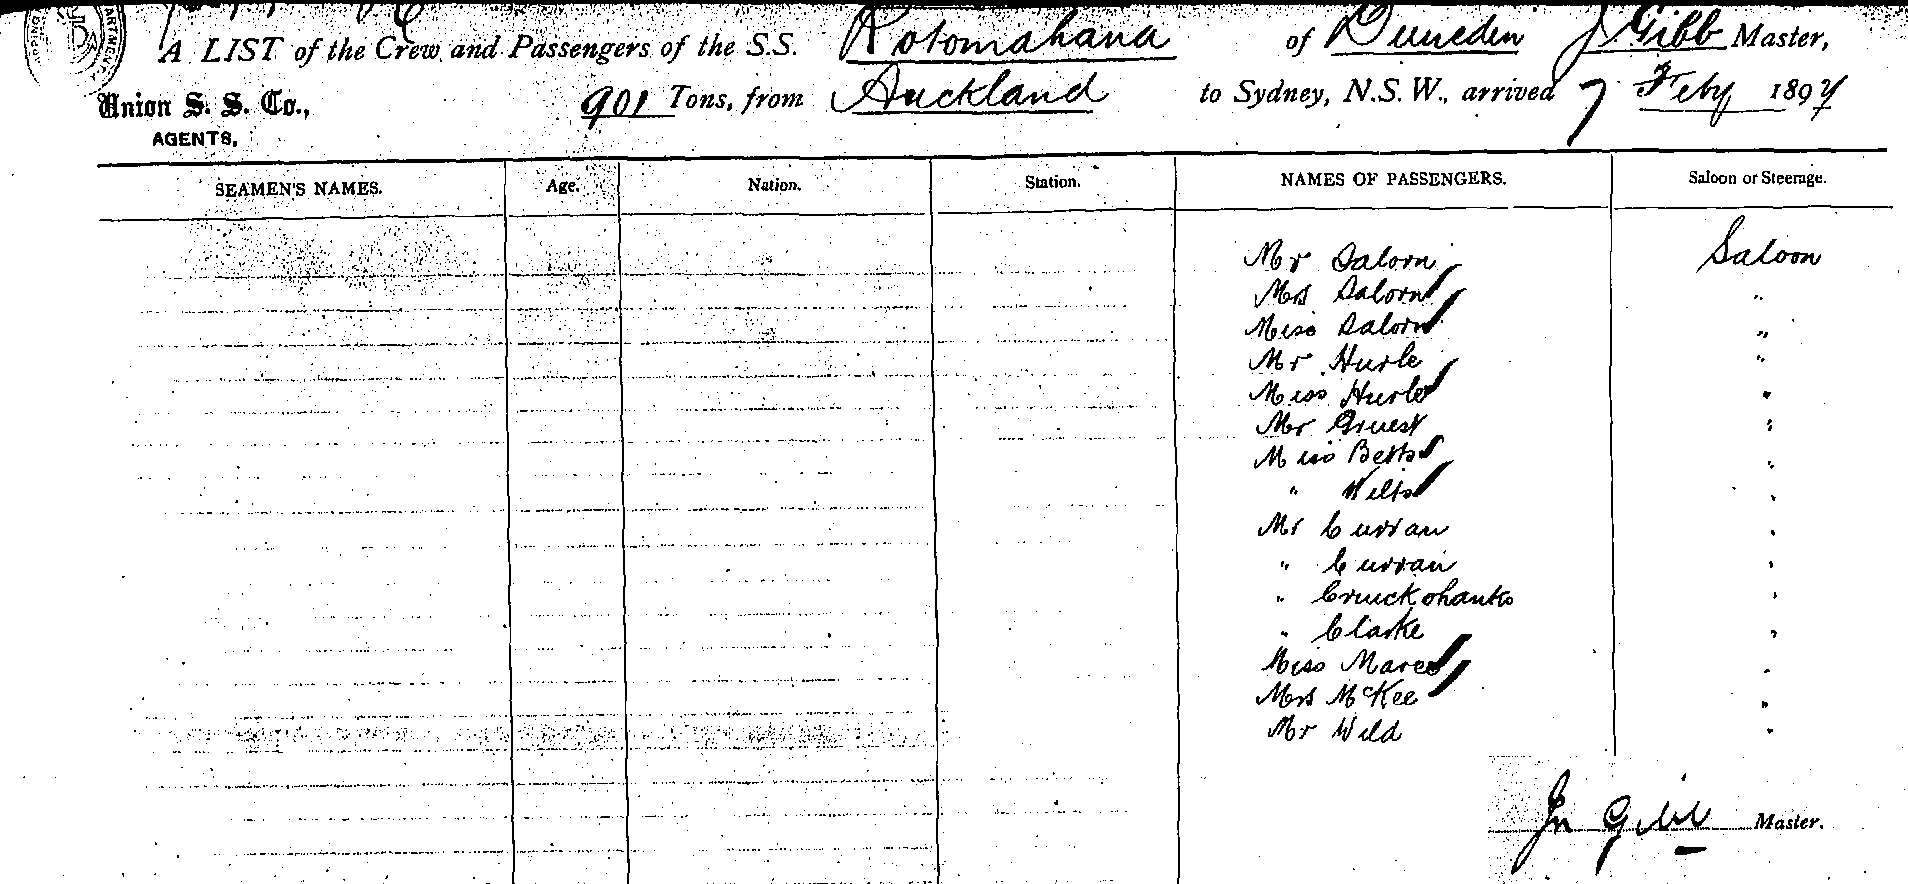 A LIST of the Crew and Passengers of the S.S. Rotomahana of Dunedin J Gibb Master,
Union S. S. Co., 901 Tons, from Auckland to Sydney, N.S.W., arrived 7 Feby 1897
AGENTS,
SEAMEN'S NAMES. Age. Nation. Station. NAMES OF PASSENGERS. Saloon or Steerage.
Mr Salorn Saloon
Mrs Salorn "
Miss Salorn "
Mr Hurle "
Miss Hurle "
Mr Gruest "
Miss Betts "
" Wilts "
Mr Curran "
" Curran "
" Cruickshanks "
" Clarke "
Miss "
Mrs McKee "
Mr Wild "
Jn Gibb Master.